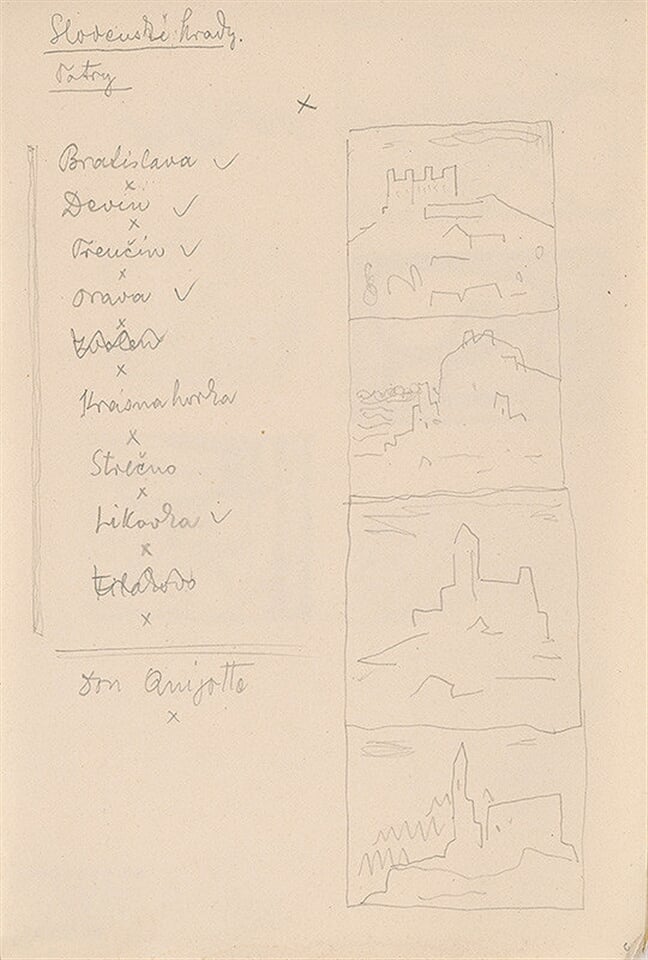 Slovenské hrady.
Tatry
Bratislava
Devín
Třenčín
Orava
Zvolen
Krásnahorka
Strečno
Likavka
Don Quijotte